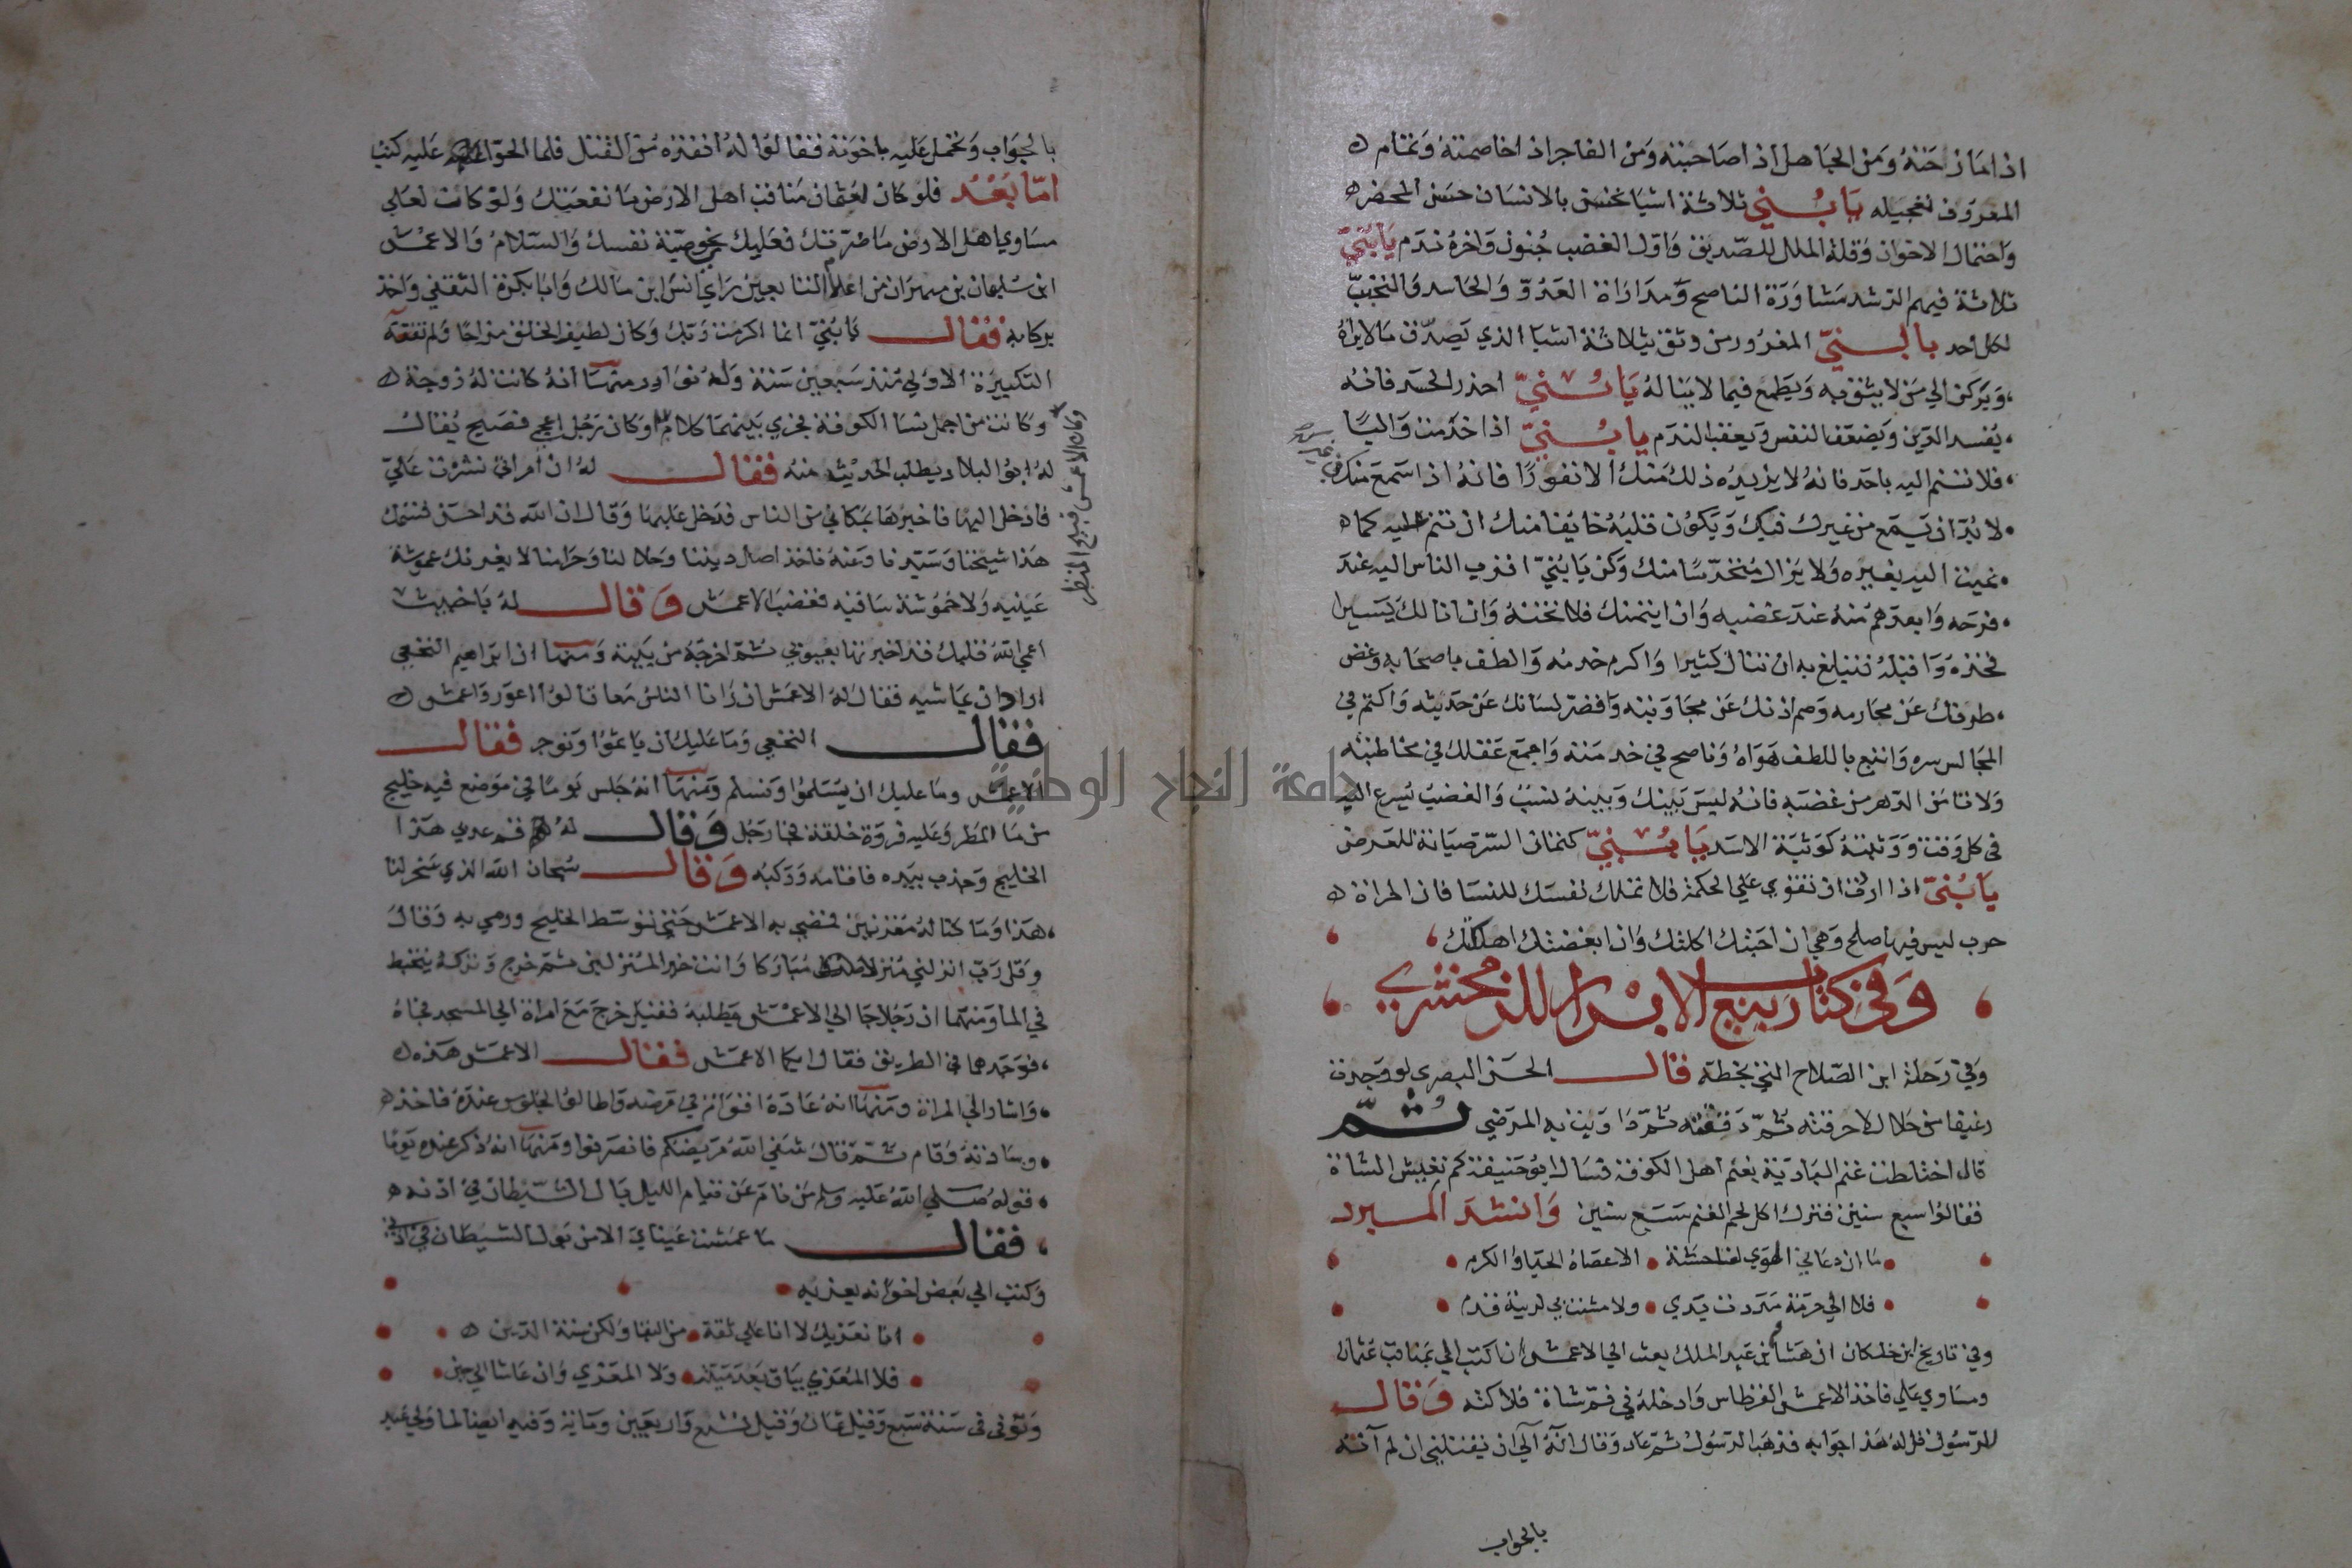 اذا مازحته ومن الجاهل اذا صاحبته ومن الفاجر اذا خاصمته وتمام
المعروف تعجيله يا بني ثلاثة اشيا تحسن بالانسان حسن المحضر
واحتمال الاخوان وقلة الملل للصديق واول الغضب جنون واخره ندم يا بني
ثلاثة فيهم الرشد مشاورة الناصح ومداراة العدو والحاسد والتحبب
لكل احد يا بني المغرور من وثق بثلاثة اشيا الذي يصدق ما لا يراه
ويركن الي من لا يثق به ويطمع فيما لا يناله يا بني احذر الحسد فانه
يفسد الدين ويضعف النفس ويعقب الندم يا بني اذا خدمت واليا
فلا تنم اليه باحد فانه لا يزيده ذلك منك الا نفورا فانه اذا سمع منك في غيرك
لا بد ان يسمع من غيرك فيك ويكون قلبه خايفا منك ان تنم عليه كما
نميت اليه بغيره ولا يزال متحرسا منك وكن يا بني اقرب الناس اليه عند
فرحه وابعدهم منه عند غضبه وان ايتمنك فلا تخنه وان انالك يسيرا
فخذه واقبله فتبلغ به ان تنال كثيرا واكرم خدمه والطف باصحابه وغض
طرفك عن محارمه وصم اذنك عن مجاوبته واقصر لسانك عن حديثه واكتم في
المجالس سره واتبع باللطف هواه وناصح في خدمته واجمع عقلك في مخاطبته
ولا تامن الدهر من غضبه فانه ليس بينك وبينه نسب والغضب يسرع اليه
في كل وقت ووثبته كوثبة الاسد يا بني كتمان السر صيانة للعرض
يا بني اذا اردت ان تقوي علي الحكمة فلا تملك نفسك للنسا فان المراة
حرب ليس فيها صلح وهي ان احبتك اكلتك وان ابغضتك اهلكتك
وفي كتاب ربيع الابرار للزمخشري
وفي رحلة ابن الصلاح التي بخطه قال الحسن البصري لو وجدت
رغيفا من حلال لاحرقته ثم دققته ثم داويت به المرضي ثم
قال اختلطت غنم البادية بغنم اهل الكوفة فسال ابو حنيفة كم تعيش الشاة
فقالوا سبع سنين فترك اكل لحم الغنم سبع سنين وانشد المبرد
ما ان دعاني الهوي لفاحشة الا عصاه الحيا والكرم
فلا الي حرمة مددت يدي ولا مشت بي لريبة قدم
وفي تاريخ ابن خلكان ان هشام بن عبد الملك بعث الي الاعمش ان اكتب الي بمناقب عثمان
ومساوي علي فاخذ الاعمش القرطاس وادخله في فم شاة فلاكته وقال
للرسول قل له هذا جوابه فذهب الرسول ثم عاد وقال انه آلي ان يقتلني ان لم آته
بالجواب
بالجواب وتحمل عليه باخوته فقالوا له افتده من القتل فلما الحوا عليه كتب
اما بعد فلو كان لعثمان مناقب اهل الارض ما نفعتك ولو كانت لعلي
مساوي اهل الارض ما ضرتك فعليك بخويصة نفسك والسلام والاعمش
ابن سليمان بن مهران من اعلام التابعين راي انس ابن مالك وابا بكرة الثقفي واخذ
بركابه فقال يا بني انما اكرمت ربك وكان لطيف الخلق مزاحا ولم تفته
التكبيرة الاولي منذ سبعين سنة وله نوادر منها انه كانت له زوجة
وكانت من اجمل نسا الكوفة فجري بينهما كلام وكان رجل اعجمي فصيح يقال
وكان الاعمش قبيح المنظر
له ابو البلاد يطلب الحديث منه فقال له ان امراتي نشزت علي
فادخل اليها فاخبرها بمكاني من الناس فدخل عليها وقال ان الله قد احسن قسمك
هذا شيخنا وسيدنا وعنه ناخذ اصل ديننا وحلالنا وحرامنا لا يغرنك عموشة
عينيه ولا خموشة ساقيه فغضب الاعمش وقال له يا خبيث
اعمي الله قلبك قد اخبرتها بعيوبي ثم اخرجه من بيته ومنها ان ابراهيم النخعي
اراد ان يماشيه فقال له الاعمش ان رانا الناس معا قالوا اعور واعمش
فقال النخعي وما عليك ان ياثموا ونوجر فقال
الاعمش وما عليك ان يسلموا ونسلم ومنها انه جلس يوما في موضع فيه خليج
من ما المطر وعليه فروة خلقة فجا رجل وقال له قم عدي هذا
الخليج وجذب بيده فاقامه وركبه وقال سبحان الله الذي سخر لنا
هذا وما كنا له مقرنين فمضي به الاعمش حتي توسط الخليج ورمي به وقال
وقل رب انزلني منزلا مباركا وانت خير المنزلين ثم خرج وتركه يتخبط
في الما ومنها ان رجلا جا الي الاعمش يطلبه فقيل خرج مع امراة الي المسجد فجاه
فوجدهما في الطريق فقال ايكما الاعمش فقال الاعمش هذه
واشار الي المراة ومنها انه عاده اقوام في مرضه واطالوا الجلوس عنده فاخذ
وسادته وقام ثم قال شفي الله مريضكم فانصرفوا ومنها انه ذكر عنده يوما
قوله صلي الله عليه وسلم من نام عن قيام الليل بال الشيطان في اذنه
فقال ما عمشت عيناي الا من بول الشيطان في اذني
وكتب الي بعض اخوانه يعزيه
انا نعزيك لا انا علي ثقة من البقا ولكن سنة الدين
فلا المعزي بباق بعد ميته ولا المعزي وان عاشا الي حين
وتوفي في سنة سبع وقيل ثمان وقيل تسع واربعين وماية وفيه ايضا لما ولي عبد
جامعة النجاح الوطنية